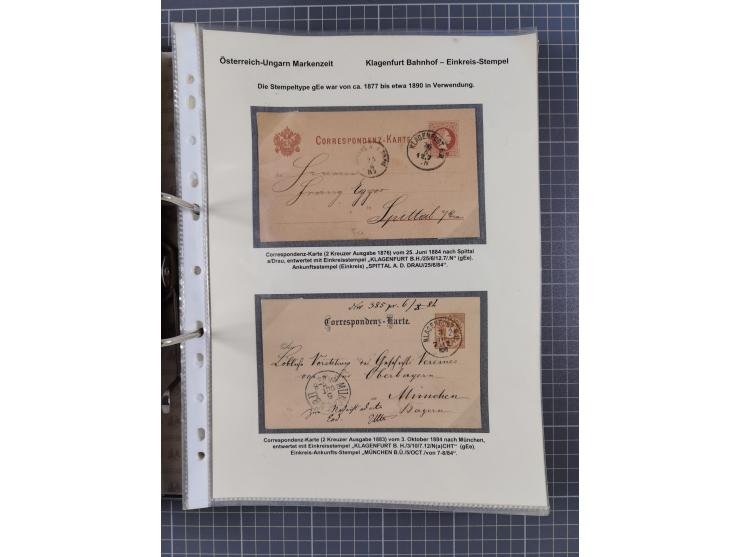 Österreich-Ungarn Markenzeit Klagenfurt Bahnhof – Einkreis-Stempel
Die Stempeltype gEe war von ca. 1877 bis etwa 1890 in Verwendung.
CORRESPONDENZ-KARTE
KLAGENFURT
Franz Egger
Spittal
Correspondenz-Karte (2 Kreuzer Ausgabe 1876) vom 25. Juni 1884 nach Spittal
a/Drau, entwertet mit Einkreisstempel „KLAGENFURT B.H./25/6/12.7/.N“ (gEe).
Ankunftsstempel (Einkreis) „SPITTAL A. D. DRAU/25/6/84“.
Correspondenz-Karte.
KLAGENFURT
Löbliche Vorstehung des Geschäft Vereines
Oberbayern
München
Bayern
Correspondenz-Karte (2 Kreuzer Ausgabe 1883) vom 3. Oktober 1884 nach München,
entwertet mit Einkreisstempel „KLAGENFURT B. H./3/10/7.12/N(a)CHT“ (gEe).
Einkreis-Ankunfts-Stempel „MÜNCHEN B.Ü./5/OCT./von 7-8/84“.